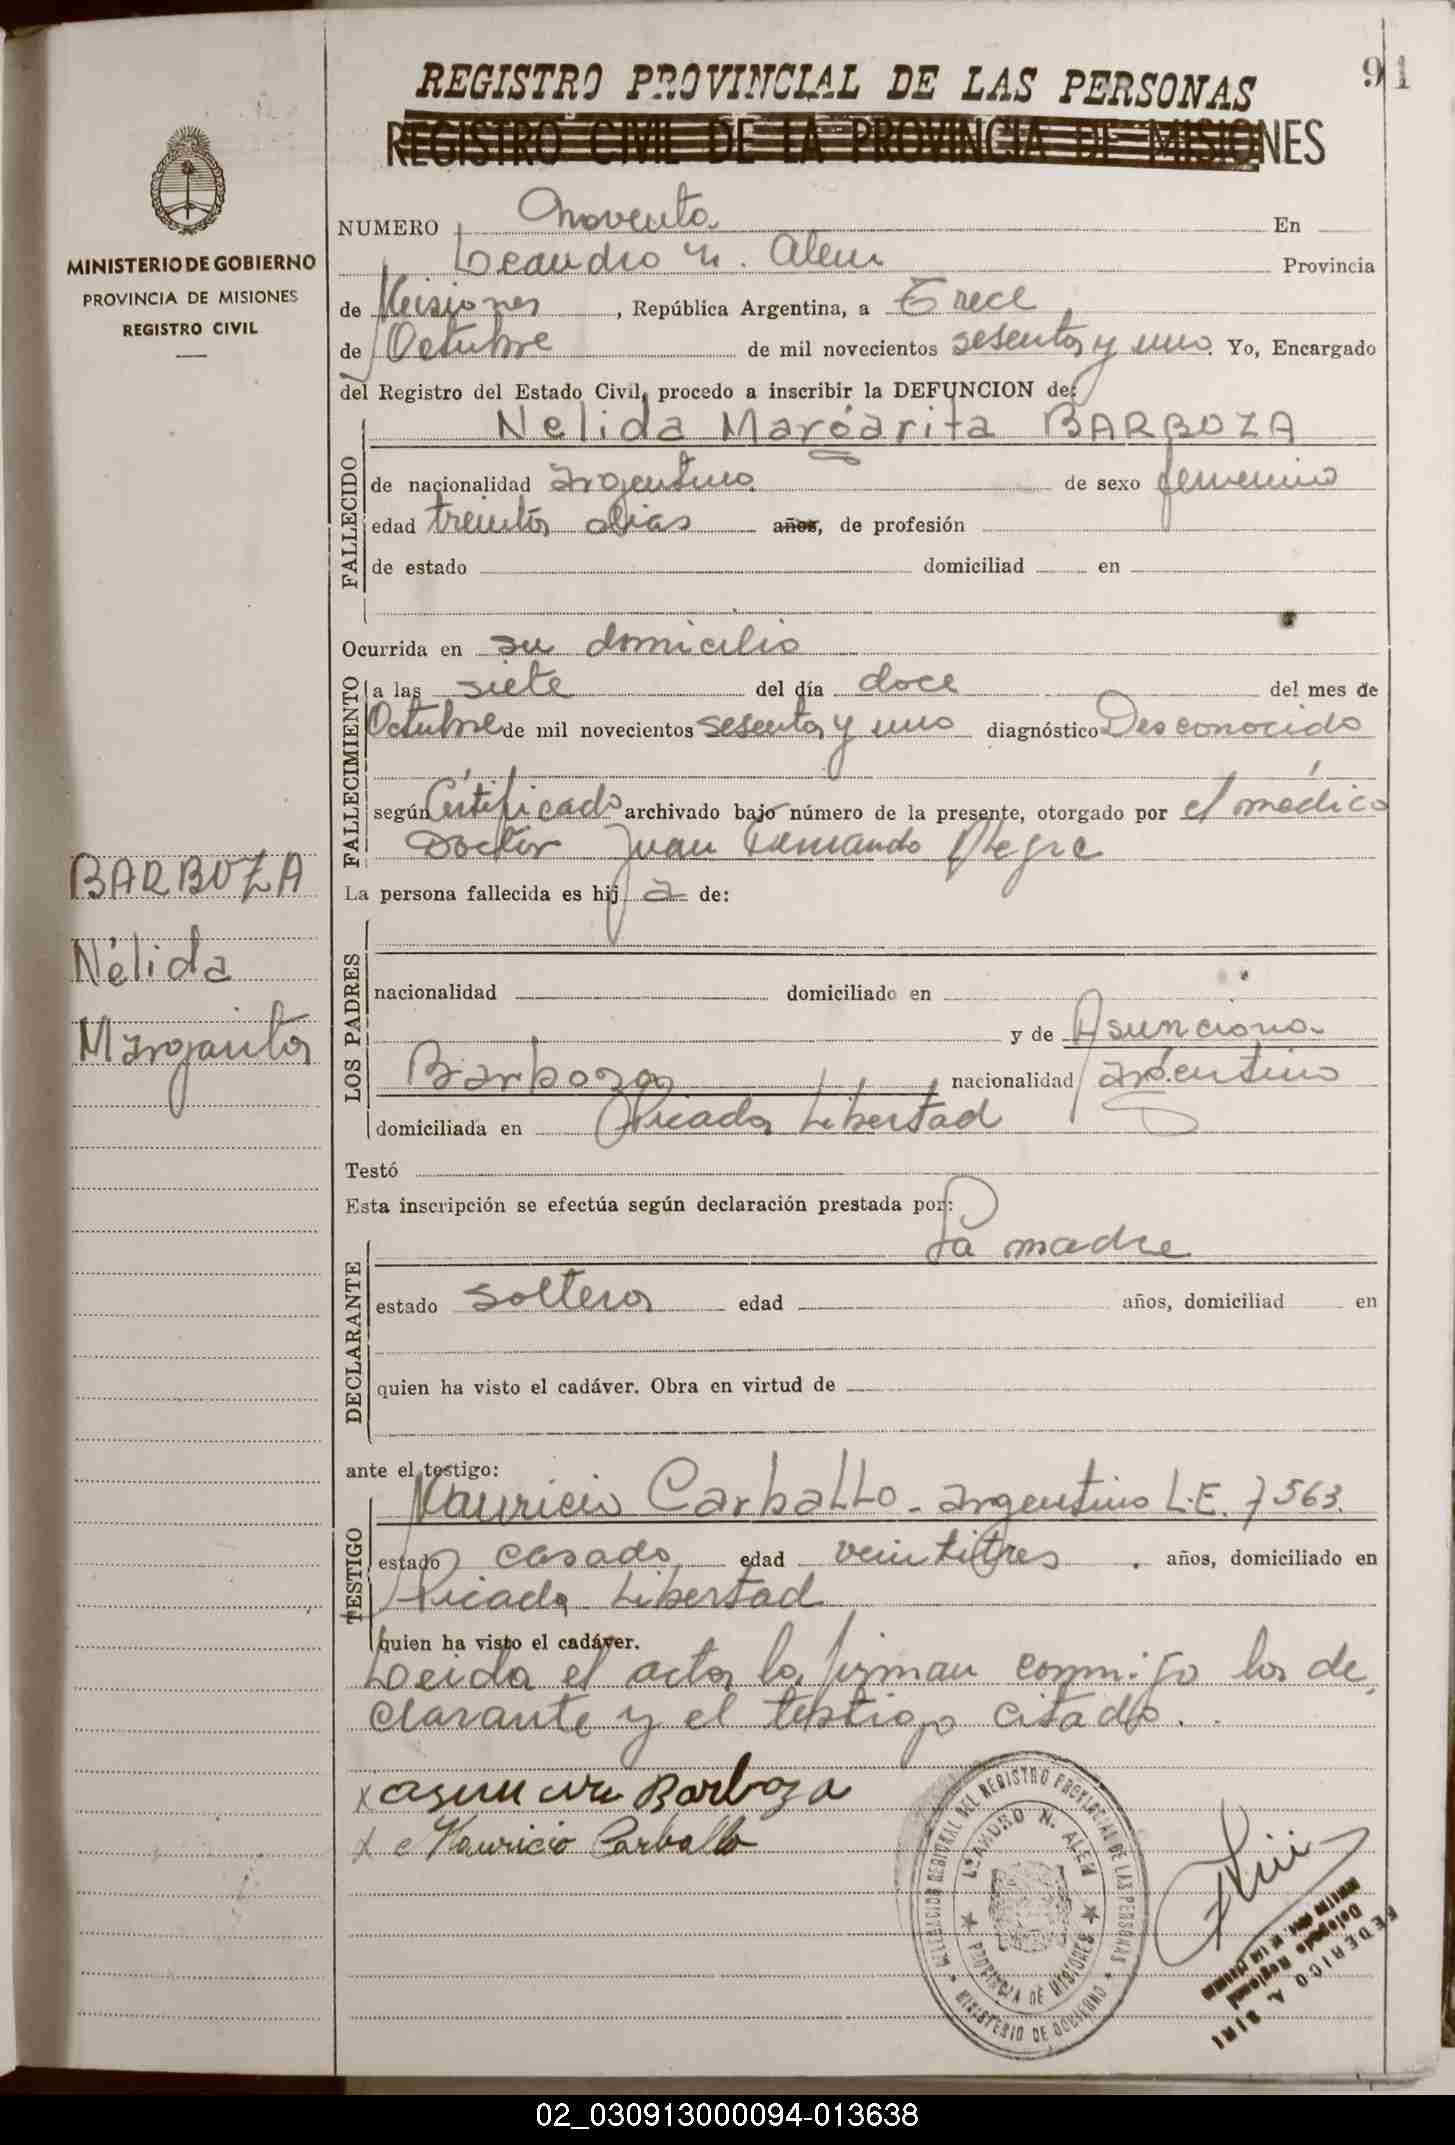 91
REGISTRO PROVINCIAL DE LAS PERSONAS
REGISTRO CIVIL DE LA PROVINCIA DE MISIONES
MINISTERIO DE GOBIERNO
PROVINCIA DE MISIONES
REGISTRO CIVIL
NUMERO Noventa En
Leandro N. Alem Provincia
de Misiones, República Argentina, a Trece
de Octubre de mil novecientos sesenta y uno. Yo, Encargado
del Registro del Estado Civil, procedo a inscribir la DEFUNCION de:
FALLECIDO
Nelida Margarita BARBOZA
de nacionalidad argentina de sexo femenino
edad treinta dias años, de profesión
de estado domiciliad en
Ocurrida en su domicilio
FALLECIMIENTO
a las siete del día doce del mes de
Octubre de mil novecientos sesenta y uno diagnóstico Desconocido
según Certificado archivado bajo número de la presente, otorgado por el médico
Doctor Juan Fernando Alegre
BARBOZA
Nélida
Margarita
La persona fallecida es hij a de:
LOS PADRES
nacionalidad domiciliado en
y de Asunciona
Barboza nacionalidad argentina
domiciliada en Picada Libertad
Testó
Esta inscripción se efectúa según declaración prestada por:
DECLARANTE
La madre
estado soltera edad años, domiciliad en
quien ha visto el cadáver. Obra en virtud de
ante el testigo:
TESTIGO
Mauricio Carballo - argentino L.E. 7563.
estado casado edad veintitres años, domiciliado en
Picada Libertad
quien ha visto el cadáver.
Leida el acta la firman conmigo la de
clarante y el testigo citado.
x Barboza
x Mauricio Carballo
DELEGACION REGIONAL DEL REGISTRO PROVINCIAL DE LAS PERSONAS
MINISTERIO DE GOBIERNO
LEANDRO N. ALEM
PROVINCIA DE MISIONES
FEDERICO A. BIRI
Delegado Regional
02_030913000094-013638